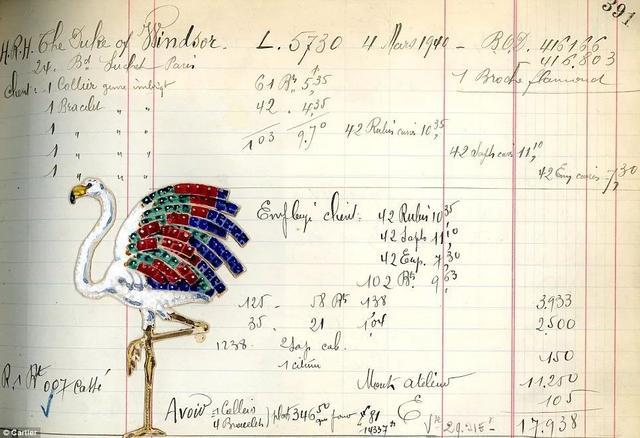 391
H.R.H. The Duke of Windsor. L. 5730 4 Mars 1940 - BOD. 416166
24. Bd Suchet Paris 416.803
client: 1 Collier 61 Bts 5,35 1 Broche flamand
1 Bracelet " " 42. 4,35
1 " " 103 9,70 42 Rubis carrés 10,35
1 " " 42 Saphs carrés 11,10
1 " " 42 Em carrés 7,30
Employé client: 42 Rubis 10,35
42 Saphs 11,10
42 Em. 7,30
102 Bts 9,63
125. 58 Bts 1,38 3.933
35. 21 1,04 2.500
1238. 2 Sap cab. 150
1 citrine
Monts atelier 11.250
R. 1 Bt 0,07 Cassé 105
Avoir = 1 Collier 4 Bracelets plat 346,50 E 17.938
© Cartier